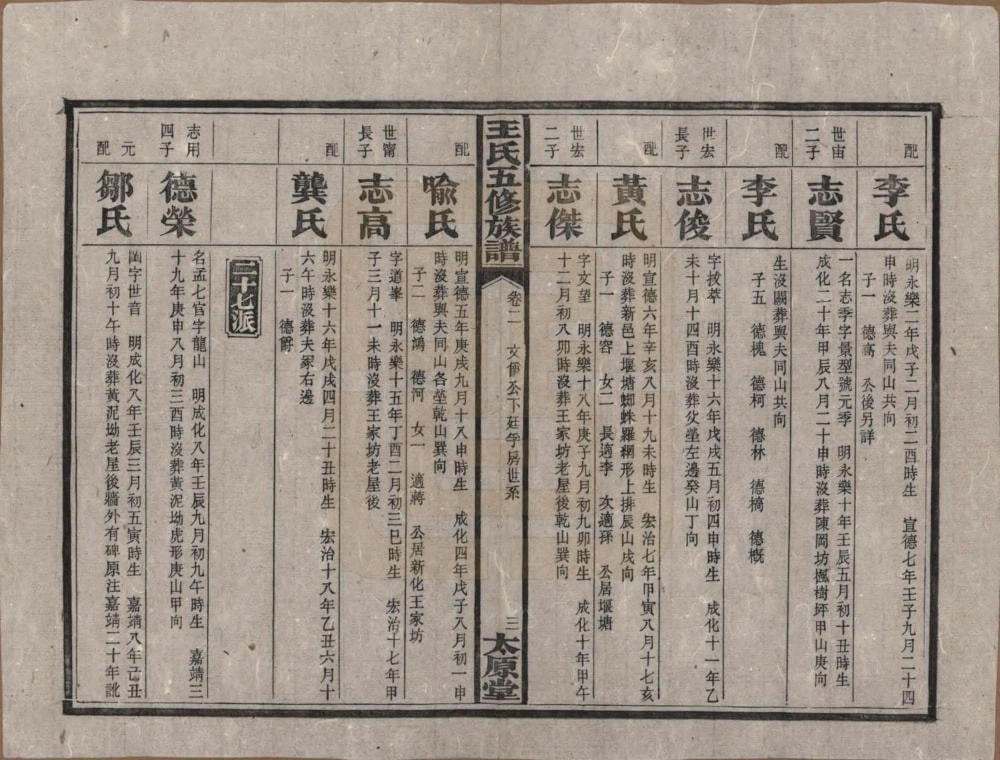 配
李氏
明永樂二年戊子二月初二酉時生 宣德七年王子九月二十四
申時沒葬與夫同山共向
子一 德高 公後另詳
世宙
二子
志賢
一名志季字景型號元季 明永樂十年壬辰五月初十丑時生
成化二十年甲辰八月二十申時沒葬陳岡坊楓樹坪甲山庚向
配
李氏
生沒闕葬與夫同山共向
子五 德槐 德柯 德林 德檹 德概
世宏
長子
志俊
字拔萃 明永樂十六年戊戌五月初四申時生 成化十一年乙
未十月十四酉時沒葬父塋左邊癸山丁向
配
黃氏
明宣德六年辛亥八月十九未時生 宏治七年甲寅八月十七亥
時沒葬新邑上堰塘蜘蛛羅網形上排辰山戌向
子一 德容 女二 長適李 次適孫 公居堰塘
世宏
二子
志傑
字文望 明永樂十八年庚子九月初九卯時生 成化十年甲午
十二月初八卯時沒葬王家坊老屋後乾山巽向
王氏五修族譜
卷二 文伊公下廷孚房世系
三
太原堂
配
喩氏
明宣德五年庚戌九月十八申時生 成化四年戊子八月初一申
時沒葬與夫同山各塋乾山巽向
子二 德鴻 德河 女一 適蔣 公居新化王家坊
世甯
長子
志高
字道峯 明永樂十五年丁酉二月初三巳時生 宏治十七年甲
子三月十一未時沒葬王家坊老屋後
配
龔氏
明永樂十六年戊戌四月二十丑時生 宏治十八年乙丑六月十
六午時沒葬夫冢右邊
子一 德爵
二十七派
志用
四子
德榮
名孟七官字龍山 明成化八年壬辰九月初九午時生 嘉靖三
十九年庚申八月初三酉時沒葬黃泥坳虎形庚山甲向
元
配
鄒氏
閨字世音 明成化八年壬辰三月初五寅時生 嘉靖八年己丑
九月初十午時沒葬黃泥坳老屋後牆外有碑原注嘉靖二十年訛